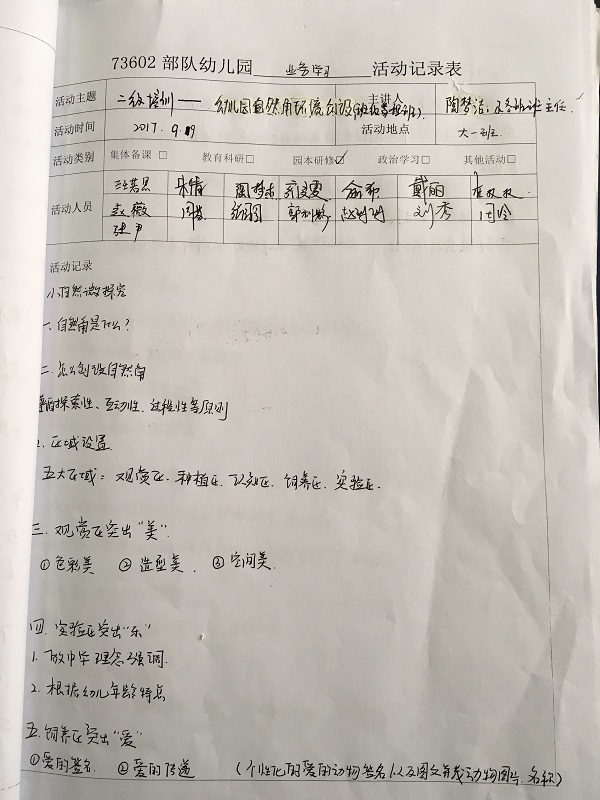 73602 部队幼儿园 业务学习 活动记录表
活动主题 二级培训—— 幼儿园自然角环境创设 主讲人 陶梦洁、及各班班主任
活动时间 2017.9.19 活动地点 大一班
活动类别 集体备课□ 教育科研□ 园本研修☑ 政治学习□ 其他活动□
朱倩 戴丽
活动人员 赵薇 刘秀 闫玲
张尹
活动记录
小自然微探究
一、自然角是什么?
二、怎么创设自然角
探索性、互动性、过程性等原则
2. 区域设置
五大区域: 观赏区、种植区、认知区、饲养区、实验区.
三、观赏区突出“美”.
①色彩美 ②造型美. ③空间美.
四、实验区突出“乐”
1. 理念强调.
2. 根据幼儿年龄特点
五、饲养区突出“爱”
①爱的签名. ②爱的传递 (个性化的爱的动物签名以及图文并茂动物图片、名称)